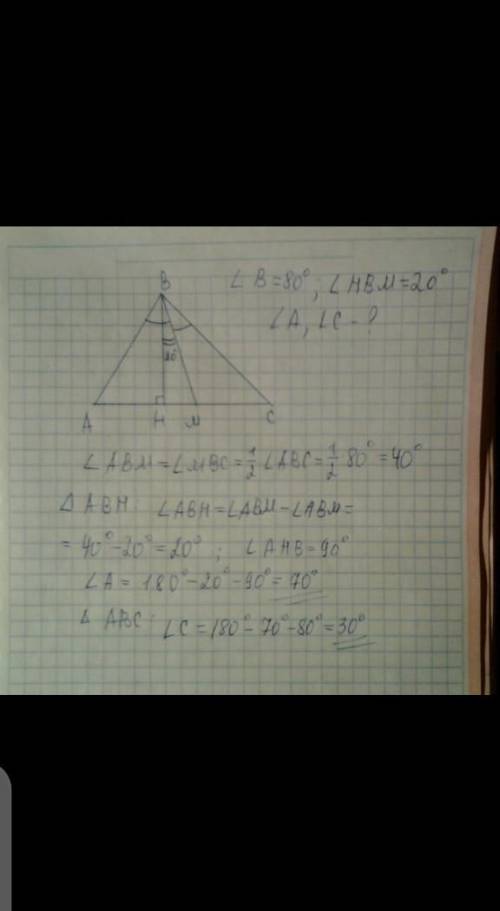 ∠B=80°, ∠HBM=20°
∠A, ∠C-?
B
20°
A H M C
∠ABM=∠MBC=1/2∠ABC=1/2·80°=40°
△ABH: ∠ABH=∠ABM-∠ABM=
=40°-20°=20°; ∠AHB=90°
∠A=180°-20°-90°=70°
△ABC: ∠C=180°-70°-80°=30°